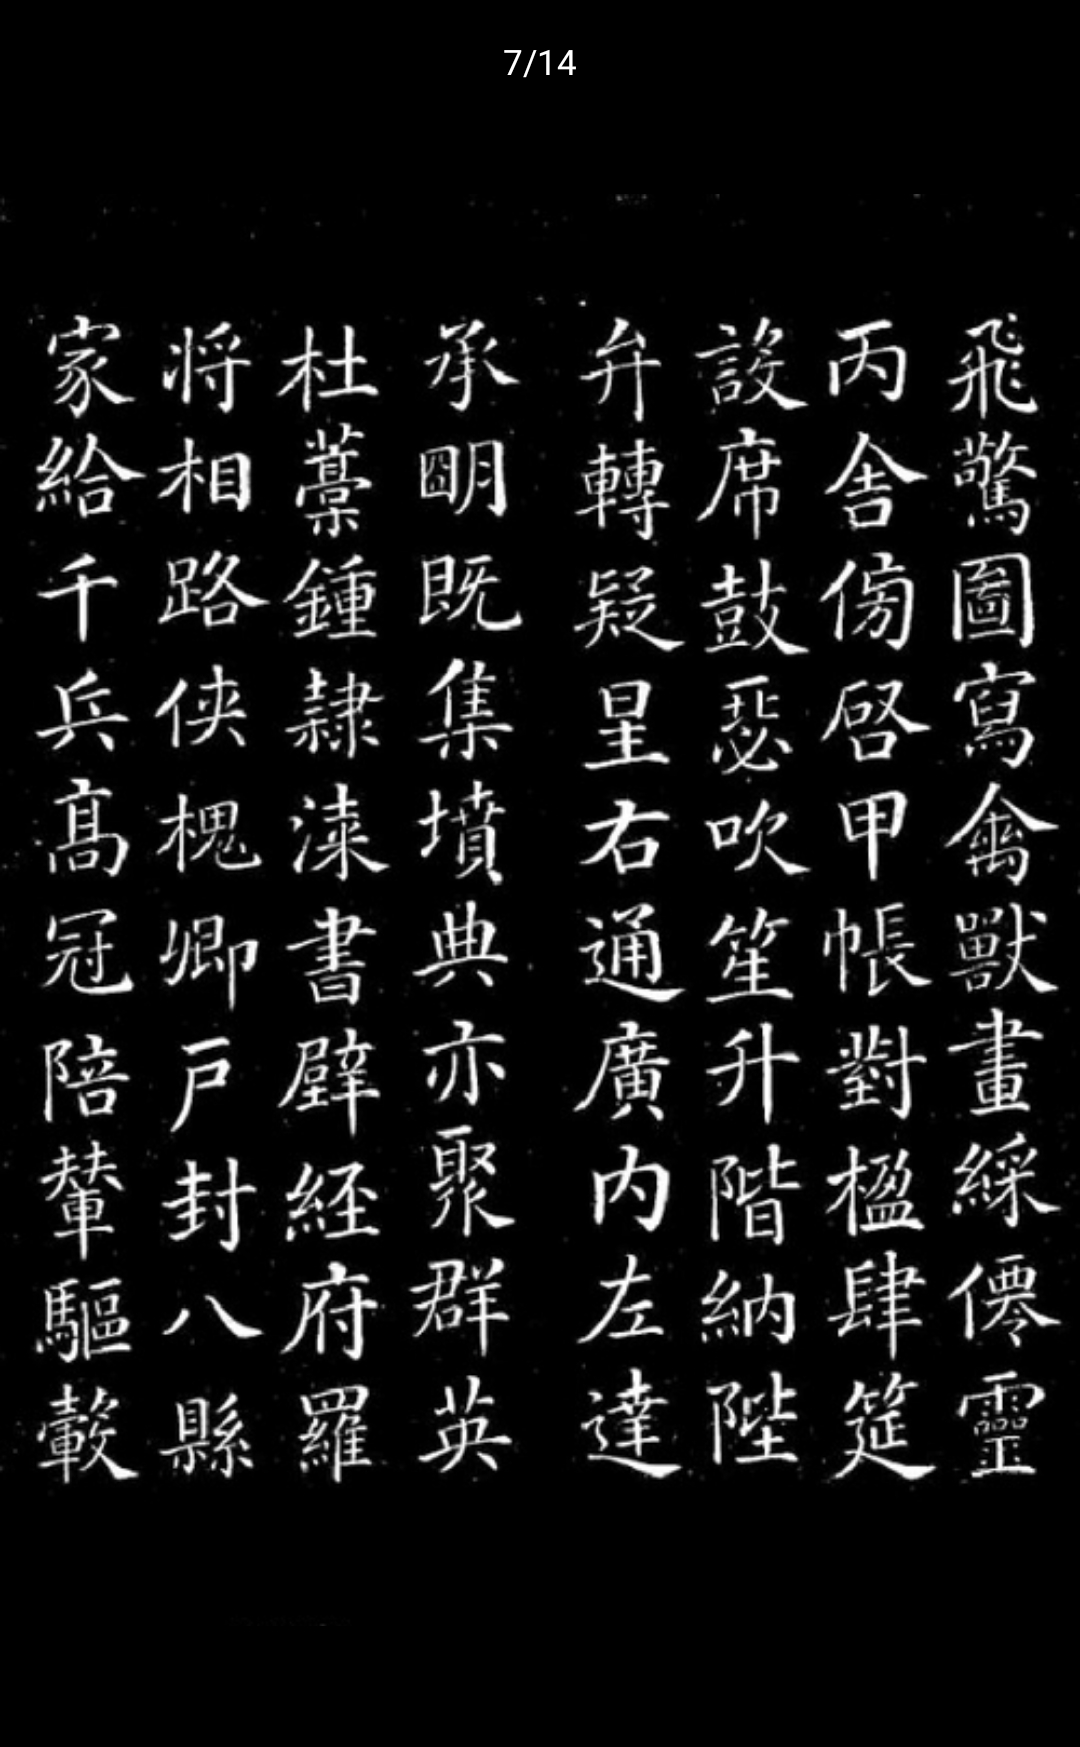 7/14
飛驚圖寫禽獸畫綵僊靈
丙舍傍啓甲帳對楹肆筵
設席鼓瑟吹笙升階納陛
弁轉疑星右通廣内左達
承朙既集墳典亦聚群英
杜藁鍾隷漆書壁経府羅
将相路侠槐卿戸封八縣
家給千兵髙冠陪輦驅轂